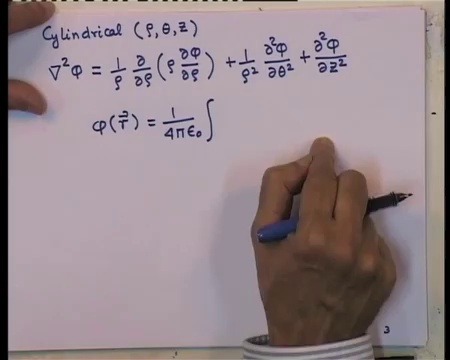 Cylindrical (ρ, θ, z)
∇²φ = 1/ρ ∂/∂ρ (ρ ∂φ/∂ρ) + 1/ρ² ∂²φ/∂θ² + ∂²φ/∂z²
φ(r⃗) = 1/4πϵ₀ ∫
3